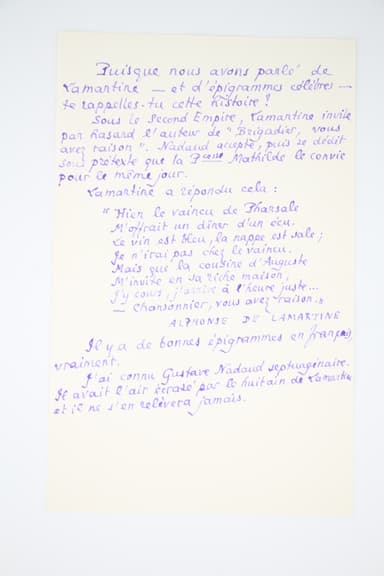 Puisque nous avons parlé de
Lamartine — et d'épigrammes célèbres —
te rappelles-tu cette histoire ?
Sous le Second Empire, Lamartine invite
par hasard l'auteur de "Brigadier, vous
avez raison". Nadaud accepte, puis se dédit
sous prétexte que la Pcesse Mathilde le convie
pour le même jour.
Lamartine a répondu cela :
"Hier le vaincu de Pharsale
M'offrait un dîner d'un écu.
Le vin est bleu, la nappe est sale ;
Je n'irai pas chez le vaincu.
Mais que la cousine d'Auguste
M'invite en sa riche maison,
J'y cours, j'arrive à l'heure juste...
— Chansonnier, vous avez raison."
ALPHONSE DE LAMARTINE
Il y a de bonnes épigrammes en français,
vraiment.
J'ai connu Gustave Nadaud septuagénaire.
Il avait l'air écrasé par le huitain de Lamartine
et il ne s'en relèvera jamais.